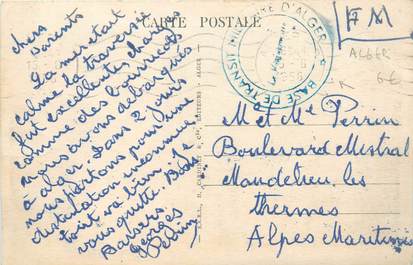 CARTE POSTALE
chers
parents
La mer était
calme la traversée
fut excellente chargés
comme des bourricots
nous avons débarqués
à alger. Dans 2 jours
nous partons pour une
destination inconnue.
tout va bien. Je
vous quitte. Bons
Baisers
Georges
Perrin
BASE DE TRANSIT MILITAIRE D'ALGER
FM
ALGER
6€
M et Me Perrin
Boulevard Mistral
Mandelieu les
thermes
Alpes Maritimes